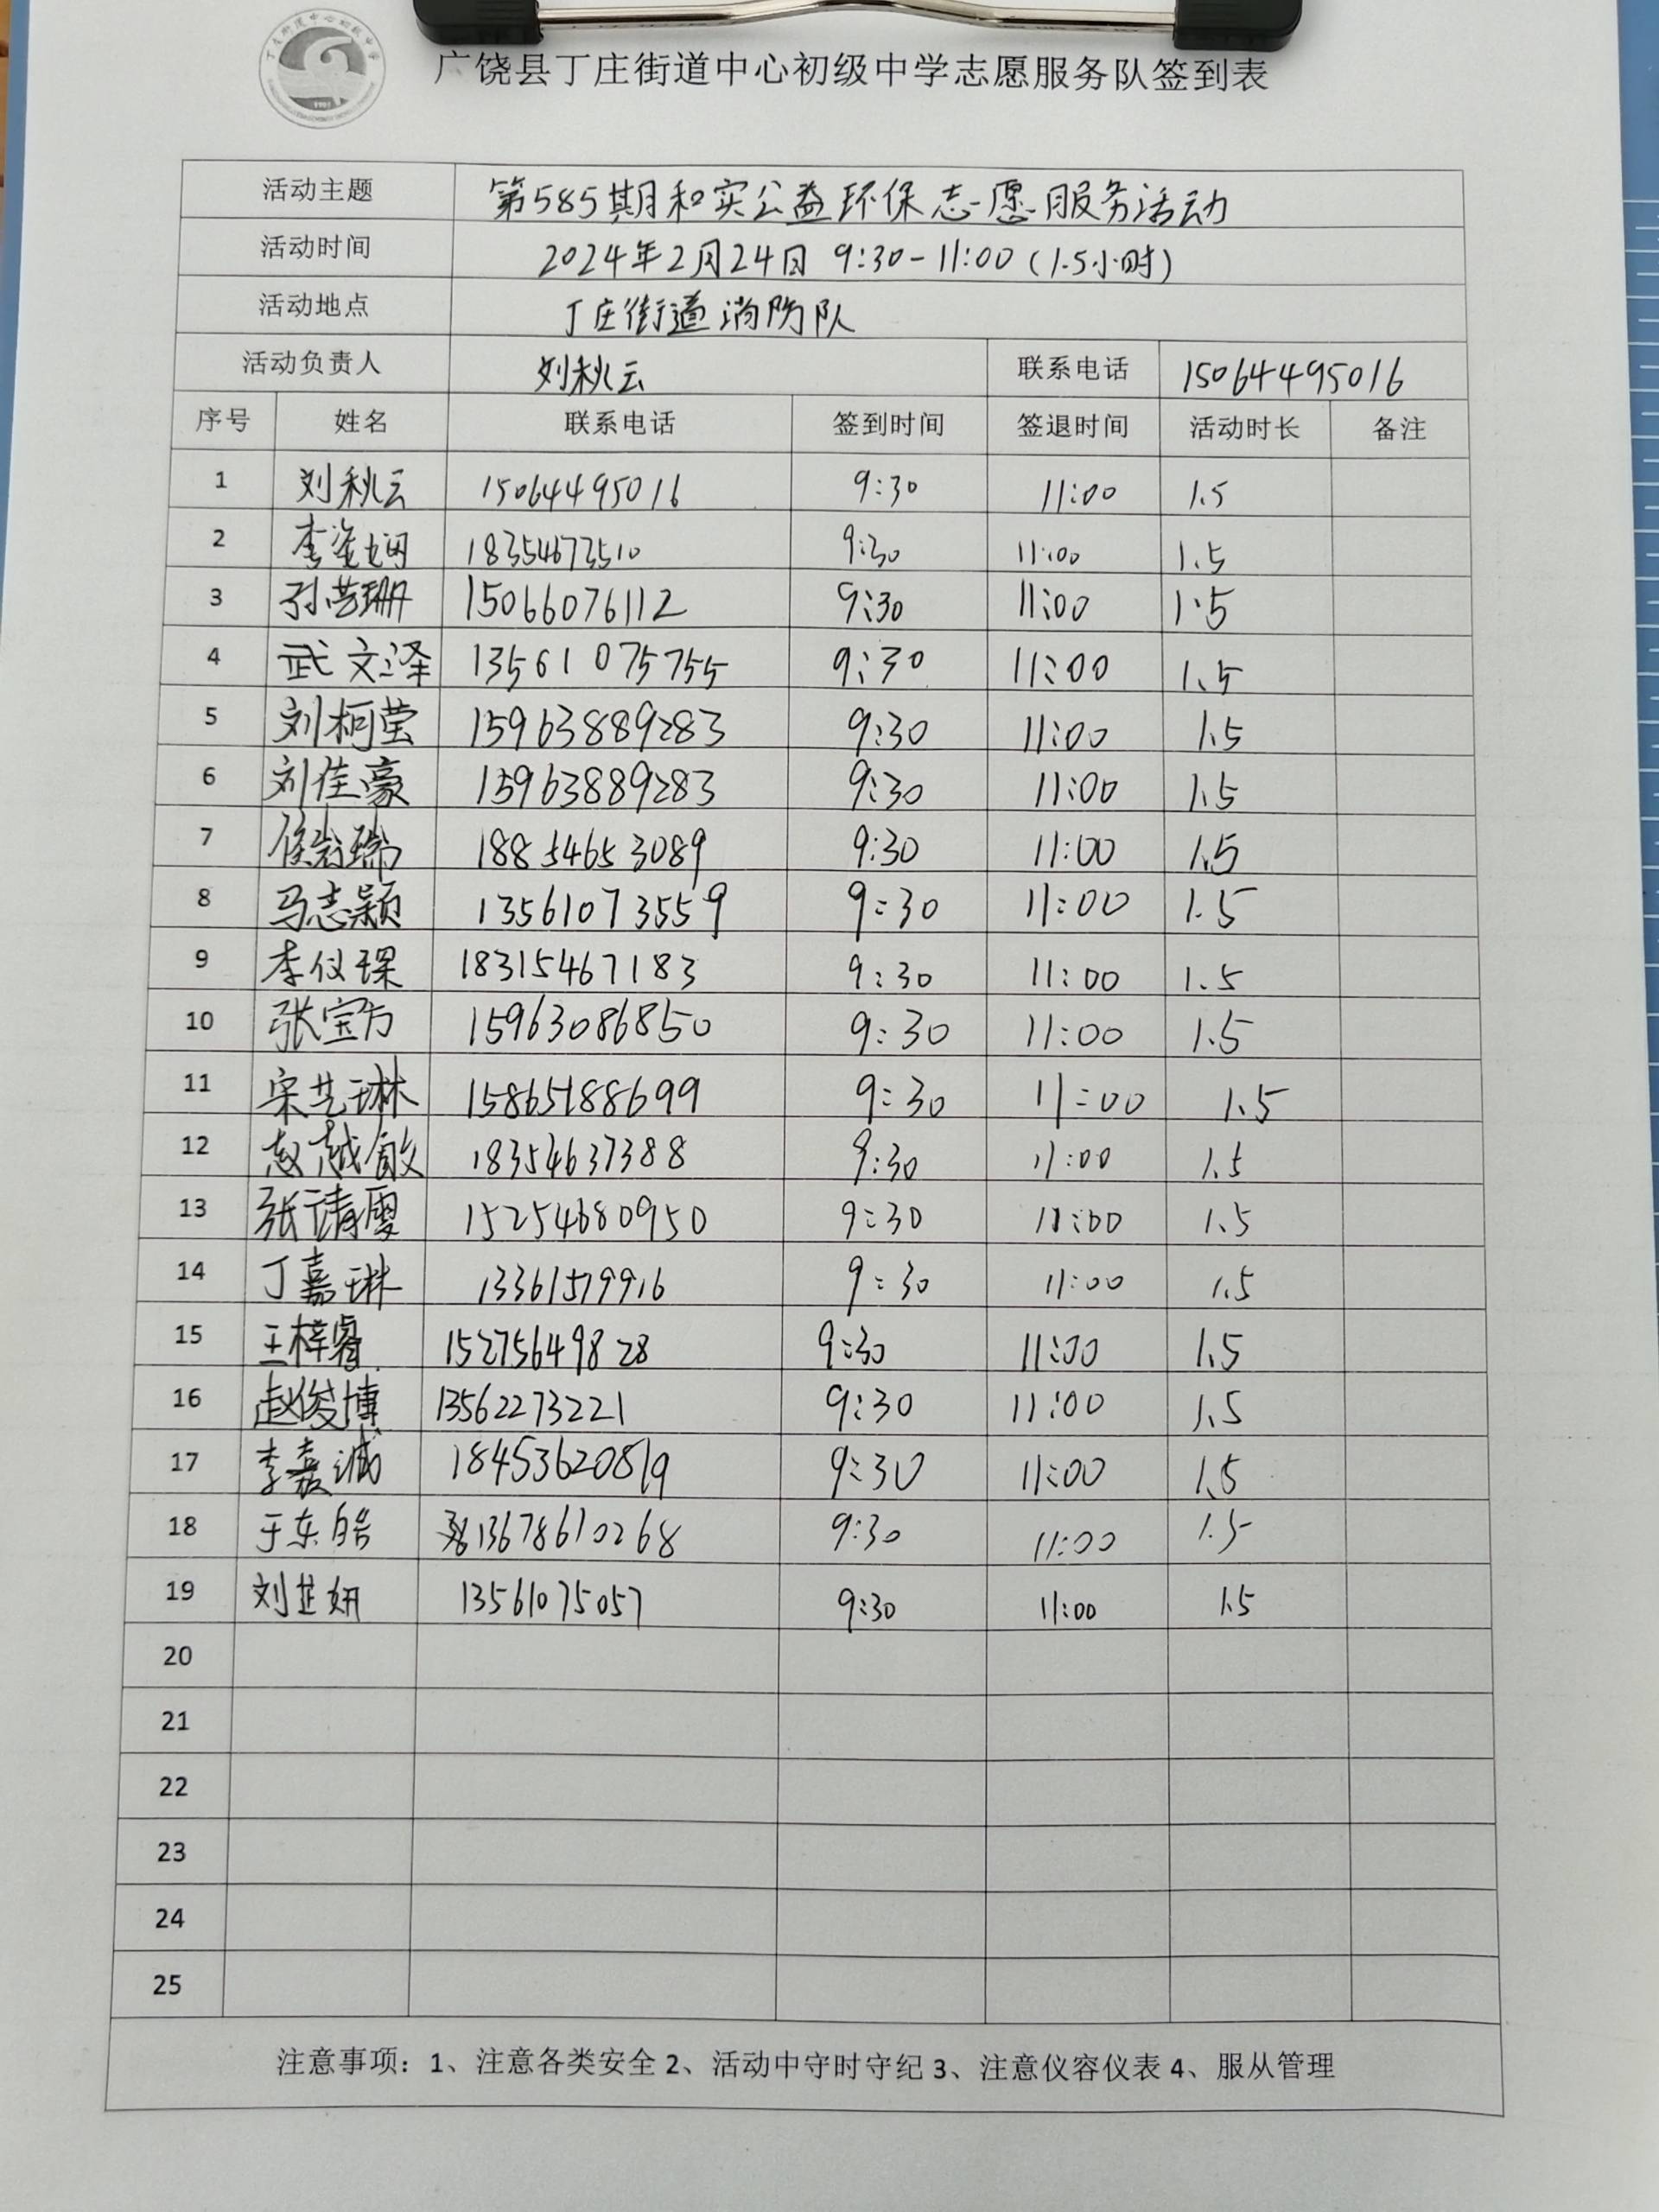 广饶县丁庄街道中心初级中学志愿服务队签到表
活动主题 第585期和实公益环保志愿服务活动
活动时间 2024年2月24日 9:30-11:00(1.5小时)
活动地点 丁庄街道消防队
活动负责人 刘秋云 联系电话 15064495016
序号 姓名 联系电话 签到时间 签退时间 活动时长 备注
1 刘秋云 15064495016 9:30 11:00 1.5
2 李姿娴 18354673510 9:30 11:00 1.5
3 孙芸珊 15066076112 9:30 11:00 1.5
4 武文泽 13561075755 9:30 11:00 1.5
5 刘柯莹 15963889283 9:30 11:00 1.5
6 刘佳豪 15963889283 9:30 11:00 1.5
7 瑞 18854653089 9:30 11:00 1.5
8 马志颖 13561073559 9:30 11:00 1.5
9 李仪琛 18315467183 9:30 11:00 1.5
10 张宝方 15963086850 9:30 11:00 1.5
11 宋艺琳 15865188699 9:30 11:00 1.5
12 赵越 18354637388 9:30 11:00 1.5
13 张靖雯 15254680950 9:30 11:00 1.5
14 丁嘉琳 13361579916 9:30 11:00 1.5
15 王梓睿 15275649828 9:30 11:00 1.5
16 赵俊博 13562273221 9:30 11:00 1.5
17 李嘉诚 18453620819 9:30 11:00 1.5
18 于东皓 13678610268 9:30 11:00 1.5
19 刘芷妍 13561075057 9:30 11:00 1.5
20
21
22
23
24
25
注意事项：1、注意各类安全 2、活动中守时守纪 3、注意仪容仪表 4、服从管理